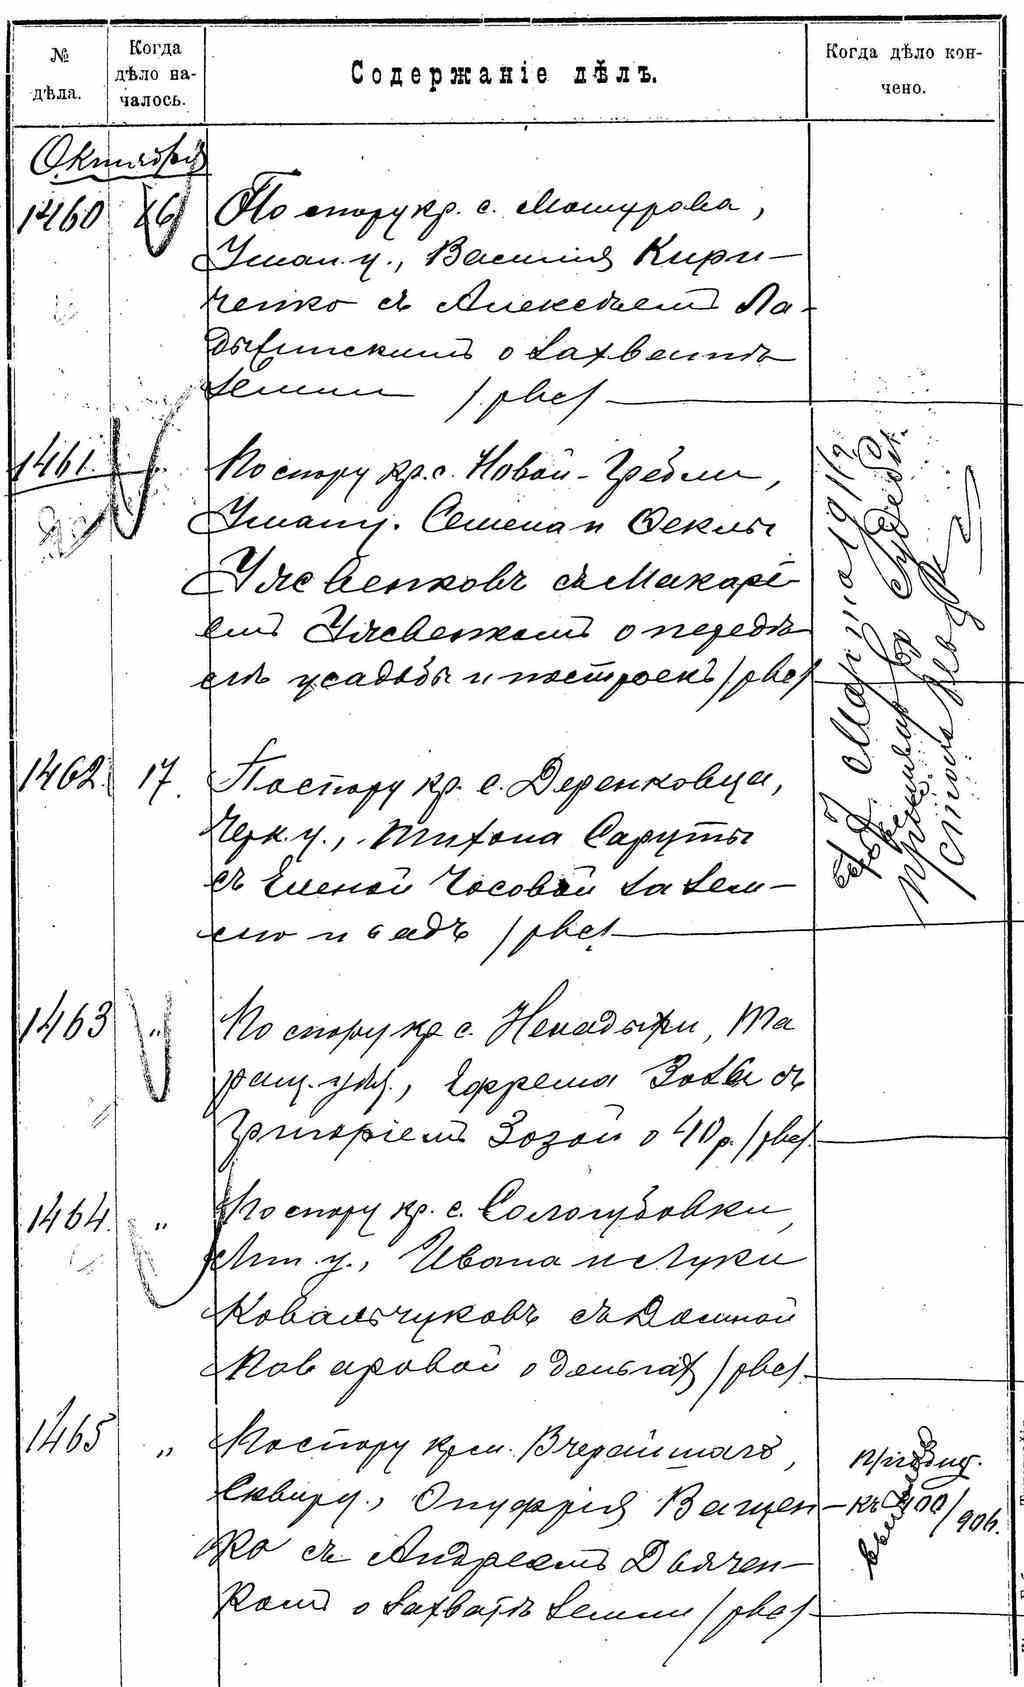 № дѣла.
Когда дѣло началось.
Содержаніе дѣлъ.
Когда дѣло кончено.
Октября
1460 16 По спору кр. с. Мошурова,
Уман. у., Василія Кири-
ченко съ Алексѣемъ Ла-
дыжинскимъ о захватѣ
земли /рвс/
1461 „ По спору кр. с. Новой-Гребли,
Уман у. Семена и Феклы
съ Макарі-
емъ о передѣ-
лѣ усадьбы и построекъ /рвс/
7 Марта 1911 г.
1462. 17. По спору кр. с. Деренковца,
Черк. у., Тихона Саруты
съ Еленой Чосовой за зем-
лю и садъ /рвс/
1463 „ По спору кр с. Ненадыхи, Та
ращ. у., Ефрема Зозы съ
Григоріемъ Зозой о 40 р. /рвс/
1464. „ По спору кр. с. Сологубовки,
Лип. у., Ивана и Луки
Ковальчуковъ съ Домной
Поваровой о деньгах /рвс/
1465 „ По спору крсм. Вчерайшаго,
Сквир у., Онуфрія Ващен-
ко съ Андреемъ Дьячен-
комъ о захватѣ земли /рвс/
къ 400/906.